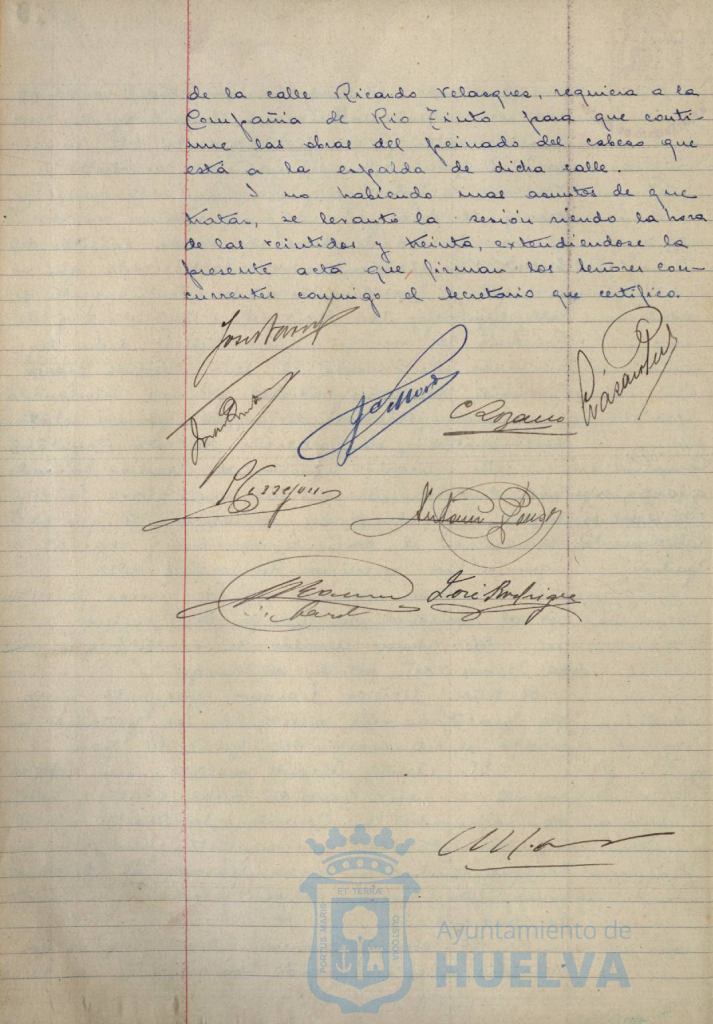 de la calle Ricardo Velasques, requiera a la
Compañia de Rio Tinto para que conti-
nue las obras del peinado del cabezo que
está a la espalda de dicha calle.
I no habiendo mas asuntos de que
tratar, se levanto la sesión siendo la hora
de las veintidos y treinta, extendiendose la
presente acta que firman los señores con-
currentes conmigo el secretario que certifico.
C Lozano
Antonio
José Rodrigue
ET TERRÆ
PORTUS MARIS
CUSTODIA
Ayuntamiento de
HUELVA